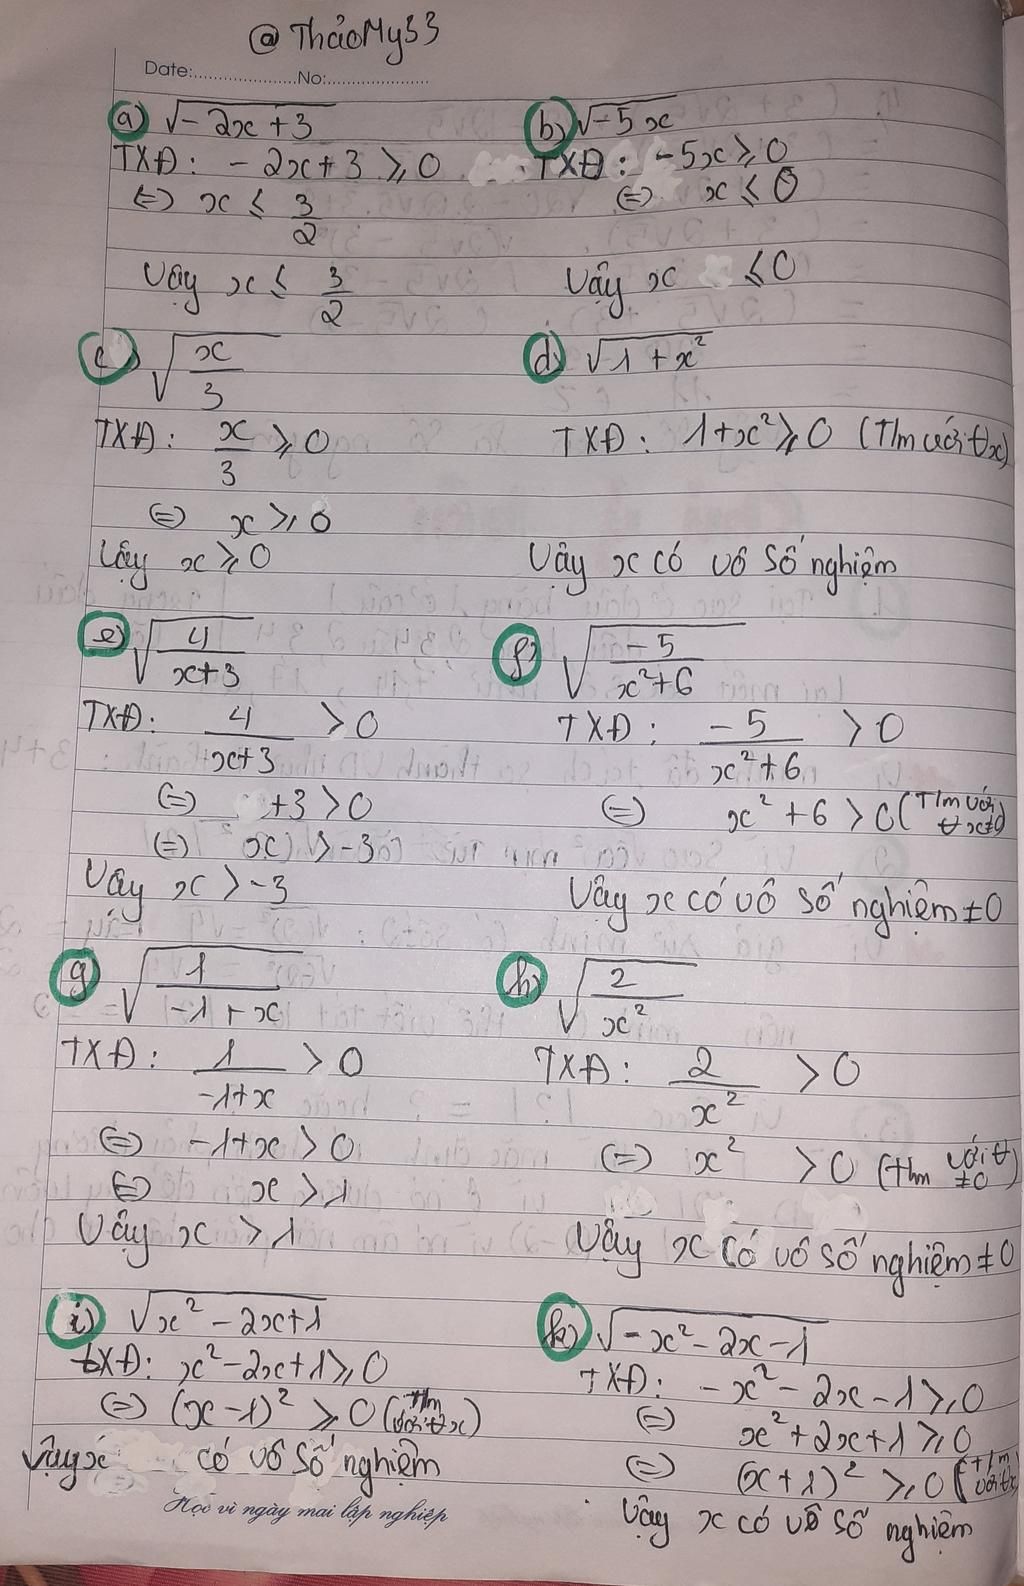 @ ThảoMy33
Date:.....................No:.....................
a) √-2x + 3
TXĐ: - 2x + 3 ⩾ 0
⇔ x ≤ 3/2
Vậy x ≤ 3/2
b) √-5x
TXĐ: -5x ⩾ 0
⇔ x ≤ 0
Vậy x ≤ 0
c) √x/3
TXĐ: x/3 ⩾ 0
⇔ x ⩾ 0
Vậy x ⩾ 0
d) √1 + x²
TXĐ: 1+x² ⩾ 0 (T/m với ∀x)
Vậy x có vô số nghiệm
e) √4/x+3
TXĐ: 4/x+3 > 0
⇔ +3 > 0
⇔ x > -3
Vậy x > -3
f) √-5/x²+6
TXĐ: -5/x²+6 > 0
⇔ x² + 6 > 0 (T/m với ∀x≠0)
Vậy x có vô số nghiệm ≠0
g) √1/-1+x
TXĐ: 1/-1+x > 0
⇔ -1+x > 0
⇔ x > 1
Vậy x > 1
h) √2/x²
TXĐ: 2/x² > 0
⇔ x² > 0 (t/m với ∀ ≠0)
Vậy x có vô số nghiệm ≠ 0
i) √x² - 2x+1
TXĐ: x² - 2x+1 ⩾ 0
⇔ (x - 1)² ⩾ 0 (T/m với ∀x)
Vậy x có vô số nghiệm
k) √-x² - 2x - 1
TXĐ: -x² - 2x - 1 ⩾ 0
⇔ x² + 2x + 1 ⩾ 0
⇔ (x + 1)² ⩾ 0 (t/m với ∀x)
Vậy x có vô số nghiệm
Học vì ngày mai lập nghiệp